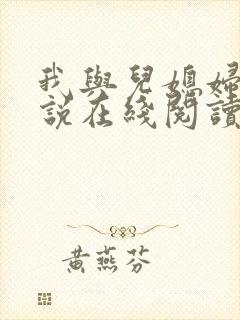 我與兒媳婦
説在綫閱讀
黃燕芬